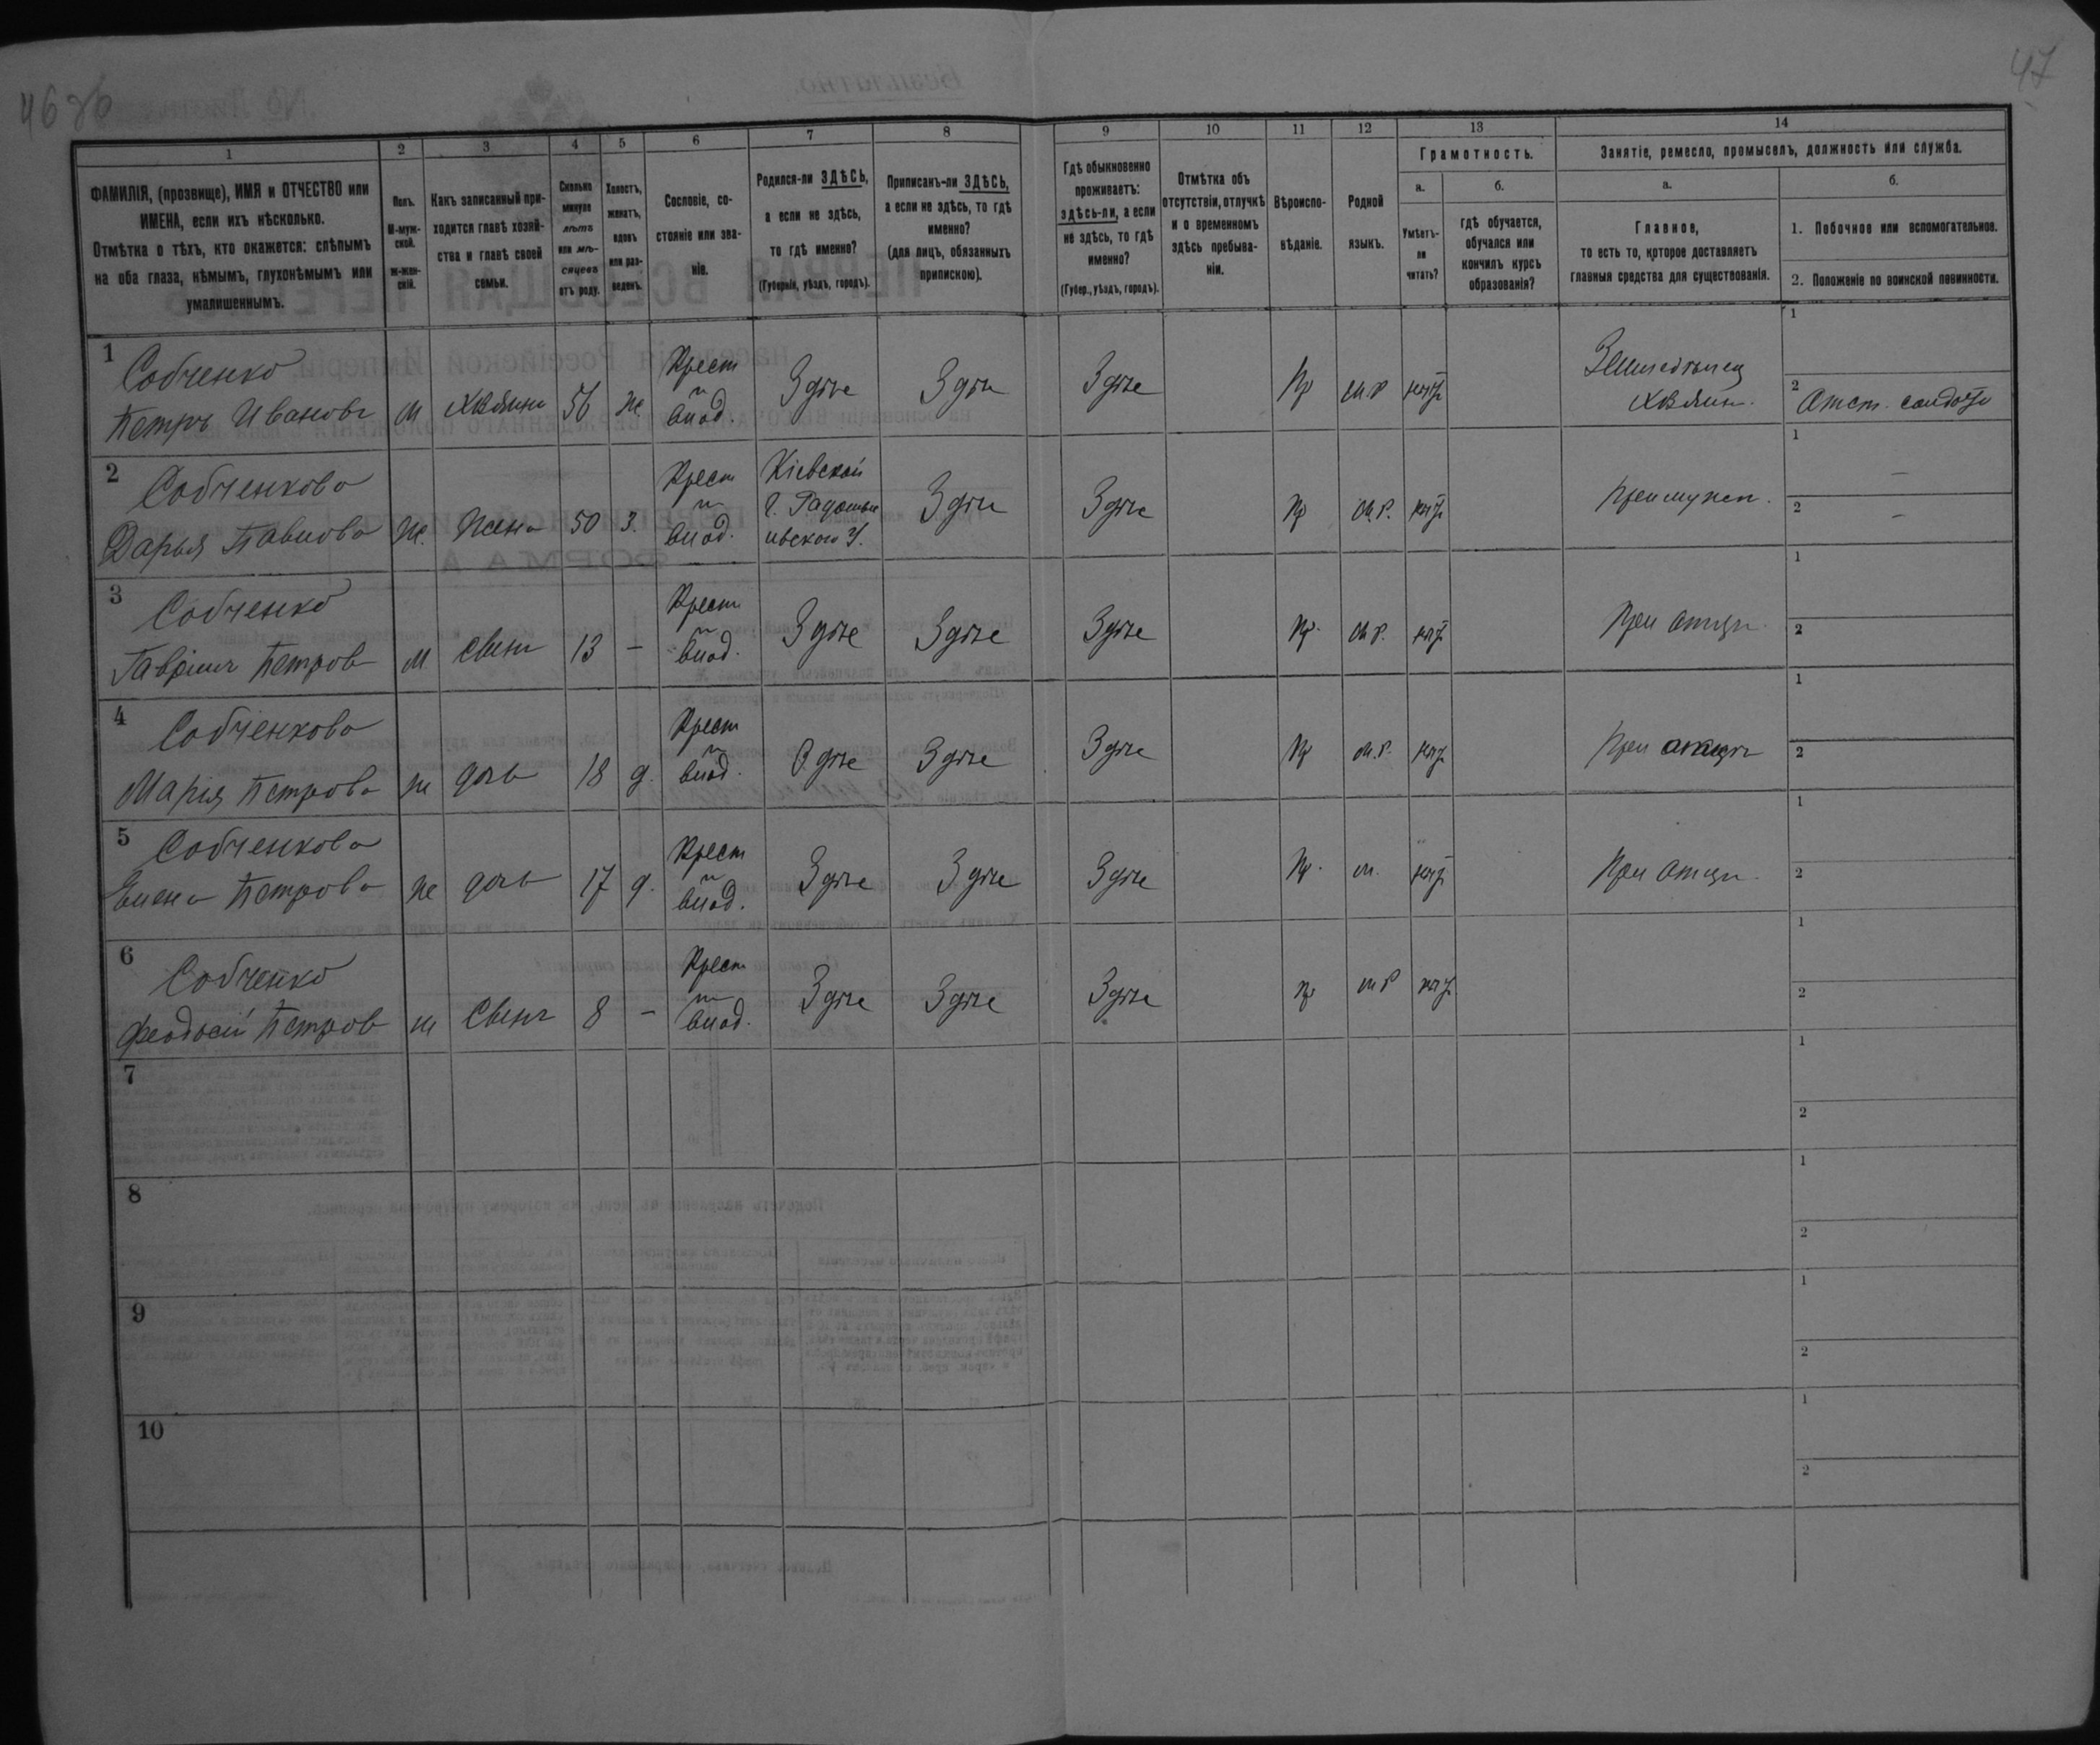 46 об
47
1
2
3
4
5
6
7
8
9
10
11
12
13
14
ФАМИЛІЯ, (прозвище), ИМЯ и ОТЧЕСТВО или
ИМЕНА, если ихъ нѣсколько.
Отмѣтка о тѣхъ, кто окажется: слѣпымъ
на оба глаза, нѣмымъ, глухонѣмымъ или
умалишеннымъ.
Полъ.
М-муж-
ской.
ж-жен-
скій.
Какъ записанный при-
ходится главѣ хозяй-
ства и главѣ своей
семьи.
Сколько
минуло
лѣтъ
или мѣ-
сяцевъ
отъ роду.
Холостъ,
женатъ,
вдовъ
или раз-
веденъ.
Сословіе, со-
стояніе или зва-
ніе.
Родился-ли ЗДѢСЬ,
а если не здѣсь,
то гдѣ именно?
(Губернія, уѣздъ, городъ).
Приписанъ-ли ЗДѢСЬ,
а если не здѣсь, то гдѣ
именно?
(для лицъ, обязанныхъ
припискою).
Гдѣ обыкновенно
проживаетъ:
здѣсь-ли, а если
не здѣсь, то гдѣ
именно?
(Губер., уѣздъ, городъ).
Отмѣтка объ
отсутствіи, отлучкѣ
и о временномъ
здѣсь пребыва-
ніи.
Вѣроиспо-
вѣданіе.
Родной
языкъ.
Грамотность.
а.
Умѣетъ-
ли
читать?
б.
гдѣ обучается,
обучался или
кончилъ курсъ
образованія?
Занятіе, ремесло, промыселъ, должность или служба.
а.
Главное,
то есть то, которое доставляетъ
главныя средства для существованія.
б.
1. Побочное или вспомогательное.
2. Положеніе по воинской повинности.
1
Собченко
Петръ Ивановъ
м
хозяинъ
56
ж.
Крест
и
влад.
Здѣсе
Здѣсе
Здѣсе
Пр
м.р
нѣт
Земледѣлец
хозяин.
1
2 Отст. солдатъ
2
Собченкова
Дарья Павлова
ж.
жена
50
з.
Крест
и
влад.
Кіевской
г. Радомысл
ьвскаго У.
Здѣсе
Здѣсе
Пр
м.р.
нѣт
При мужѣ.
1 —
2 —
3
Собченко
Гавріилъ Петров
м
сынъ
13
—
Крест
и
влад.
Здѣсе
Здѣсе
Здѣсе
Пр.
м.р.
нѣт
При отцѣ.
1
2
4
Собченкова
Марія Петрова
ж
дочь
18
д.
Крест
и
влад.
Здѣсе
Здѣсе
Здѣсе
Пр
м.р.
нѣт
При отцѣ
1
2
5
Собченкова
Елена Петрова
ж
дочь
17
д.
Крест
и
влад.
Здѣсе
Здѣсе
Здѣсе
Пр.
м.
нѣт
При отцѣ.
1
2
6
Собченко
Феодосій Петров
м
Сынъ
8
—
Крест
и
влад.
Здѣсе
Здѣсе
Здѣсе
пр
м р
нѣт
1
2
7
1
2
8
1
2
9
1
2
10
1
2